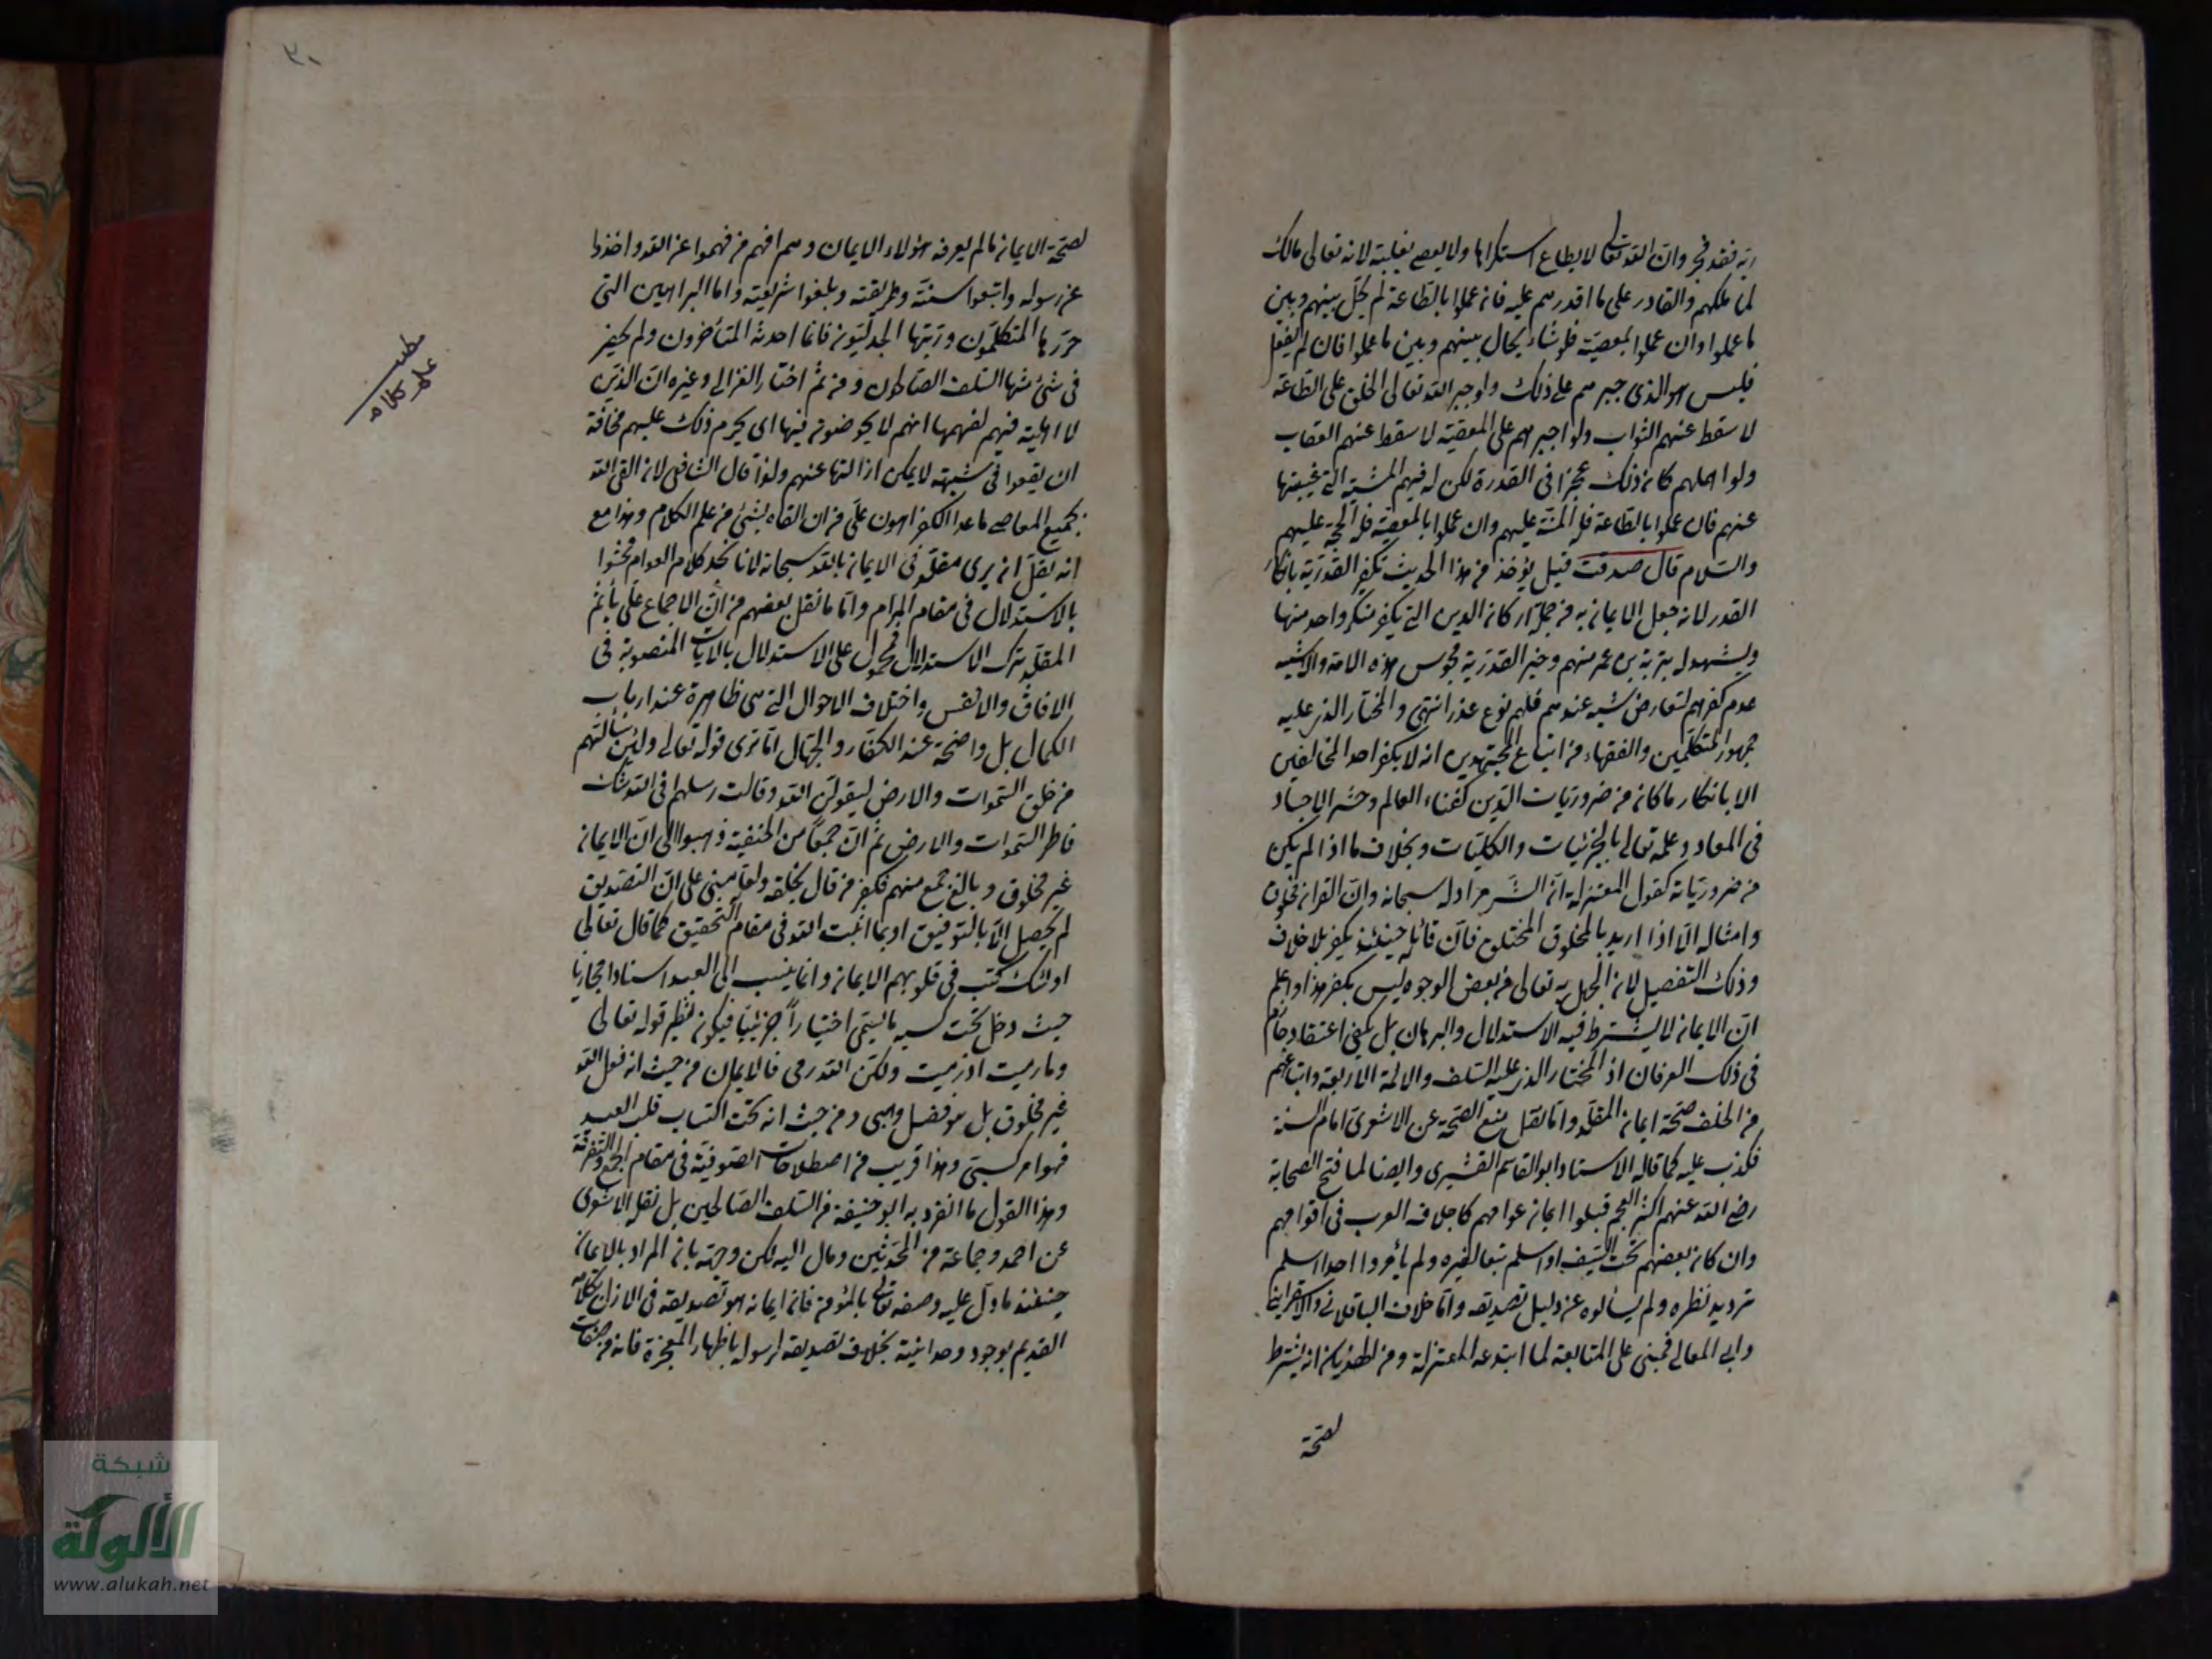 ربه فقد فجر وان الله تعالى لا يطاع استكراها ولا يعصى بغلبة لانه تعالى مالك
لما ملكهم والقادر على ما اقدرهم عليه فان عملوا بالطاعة لم يحل بينهم وبين
ما عملوا وان عملوا بمعصية فلو شاء يحال بينهم وبين ما عملوا فان لم يفعل
فليس هو الذى جبرهم على ذلك ولو جبر الله تعالى الخلق على الطاعة
لاسقط عنهم الثواب ولو اجبرهم على المعصية لاسقط عنهم العقاب
ولو اهملهم كان ذلك عجزا فى القدرة لكن له فيهم المشية التى غيبتها
عنهم فان عملوا بالطاعة فله المنة عليهم وان عملوا بالمعصية فله الحجة عليهم
والسلام قال صدقت قيل يؤخذ من هذا الحديث تكفير القدرية بانكار
القدر لانه جعل الايمان به من جملة اركان الدين التى يكفر منكر واحد منها
ويشهد له تبرية بن عمر منهم وخبر القدرية مجوس هذه الامة والاشبه
عدم كفرهم لتعارض شبه عندهم فلهم نوع عذر انتهى والمختار الذى عليه
جمهور المتكلمين والفقهاء من اتباع المجتهدين انه لا يكفر احد المخالفين
الا بانكار ما كان من ضروريات الدين كفناء العالم وحشر الاجساد
فى المعاد وعلمه تعالى بالجزئيات والكليات وبخلاف ما اذا لم يكن
من ضرورياته كقول المعتزلة ان الشر مراد له سبحانه وان القران مخلوق
وامثاله الا اذا اريد بالمخلوق المختلق فان قائله حينئذ يكفر بلا خلاف
وذلك التفصيل لان الجهل به تعالى من بعض الوجوه ليس بكفر هذا واعلم
ان الايمان لا يشترط فيه الاستدلال والبرهان بل يكفى اعتقاد جازم
فى ذلك العرفان اذ المختار الذى عليه السلف والائمة الاربعة واتباعهم
من الخلف صحة ايمان المقلد واما نقل منع الصحة عن الاشعرى امام السنة
فكذب عليه كما قاله الاستاد ابو القاسم القشيرى وايضا لما فتح الصحابة
رضى الله عنهم اكثر العجم قبلوا ايمان عوامهم كاجلاف العرب فى اقوامهم
وان كان بعضهم تحت السيف او اسلم تبعا لغيره ولم يأمروا احدا اسلم
ترديد نظره ولم يسألوه عن دليل تصديقه واما خلاف الباقلانى والاسفراينى
وابى المعالى فمبنى على المتابعة لما ابتدعه المعتزلة ومن انه يشترط
لصحة
٣٠
لصحة الايمان ما لم يعرفه هؤلاء الايمان وهم افهم من فهموا عن الله واخذوا
عن رسوله واتبعوا سنته وطريقته وبلغوا شريعته واما البراهين التى
حررها المتكلمون ورتبها الجدليون فانما احدثه المتأخرون ولم يخض
فى شئ منها السلف الصالحون ومن ثم اختار الغزالى وغيره ان الذين
لا اهلية فيهم لفهمها انهم لا يخوضون فيها اى يحرم ذلك عليهم مخافة
ان يقعوا فى شبهة لا يمكن ازالتها عنهم ولذا قال الشافعى لان القى الله
بجميع المعاصى ما عدا الكفر اهون على من ان القاه بشئ من علم الكلام وهذا مع
انه يقل ان يرى مقلد فى الايمان بالله سبحانه لانا نجد كلام العوام محشوا
بالاستدلال فى مقام المرام واما ما نقل بعضهم من ان الاجماع على تأثيم
المقلد بترك الاستدلال فمحمول على الاستدلال بالآيات المنصوبة فى
الافاق والانفس واختلاف الاحوال التى هى ظاهرة عند ارباب
الكمال بل واضحة عند الكفار والجهال اما ترى قوله تعالى ولئن سألتهم
من خلق السموات والارض ليقولن الله وقالت رسلهم افى الله شك
فاطر السموات والارض ثم ان جمعا من الحنفية ذهبوا الى ان الايمان
غير مخلوق وبالغ جمع منهم فكفر من قال بخلقه ولعله مبنى على ان التصديق
لم يحصل الا بالتوفيق او بما اثبت الله فى مقام التحقيق كما قال تعالى
اولئك كتب فى قلوبهم الايمان وانما ينسب الى العبد اسنادا مجازيا
حيث دخل تحت كسبه ما يسمى اختيارا جزئيا فيكون نظير قوله تعالى
وما رميت اذ رميت ولكن الله رمى فالايمان من حيث انه فعل الله
غير مخلوق بل هو فضل وهبى ومن حيث انه تحت اكتساب قلب العبد
فهو امر كسبى وهذا قريب من اصطلاحات الصوفية فى مقام الجمع والتفرقة
وهذا القول ما انفرد به ابو حنيفة من السلف الصالحين بل نقله الاشعرى
عن احمد وجماعة من المحدثين ومال اليه لكن وجهه بان المراد بالايمان
حينئذ ما دل عليه وصفه تعالى بالمؤمن فان ايمانه هو تصديقه فى الازل بكلامه
القديم بوجود وحدانيته بخلاف تصديقه لرسوله باظهار المعجزة فانه من صفات
مطلب
علم كلام
شبكة
الألوكة
www.alukah.net